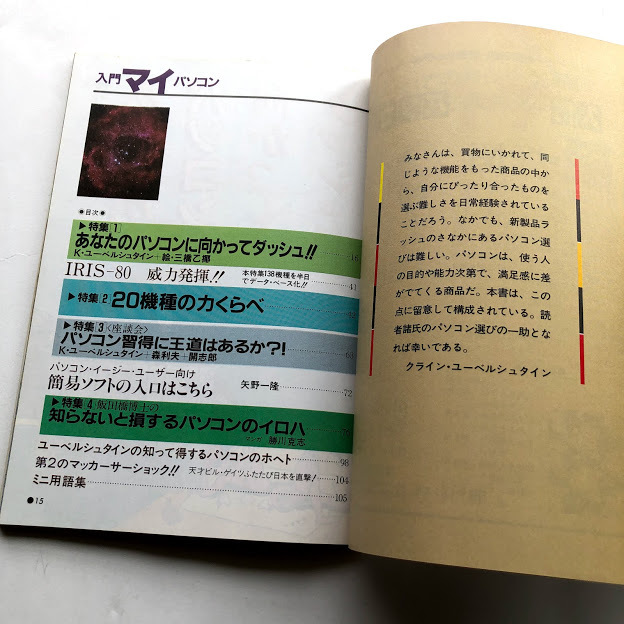 入門マイパソコン
●目次●
▶特集1
あなたのパソコンに向かってダッシュ!!
K・ユーベルシュタイン+絵・三橋乙揶 16
IRIS-80 威力発揮!! 本特集138機種を半日
でデータ・ベース化!! 41
▶特集2 20機種の力くらべ
▶特集3〈座談会〉
パソコン習得に王道はあるか?!
K・ユーベルシュタイン+森利夫+開志郎 63
パソコン・イージー・ユーザー向け
簡易ソフトの入口はこちら 矢野一隆 72
▶特集4 飯田橋博士の
知らないと損するパソコンのイロハ
マンガ 勝川克志
ユーベルシュタインの知って得するパソコンのホヘト 98
第2のマッカーサーショック!! 天才ビル・ゲイツふたたび日本を直撃! 104
ミニ用語集 105
●15
みなさんは、買物にいかれて、同
じような機能をもった商品の中か
ら、自分にぴったり合ったものを
選ぶ難しさを日常経験されている
ことだろう。なかでも、新製品ラ
ッシュのさなかにあるパソコン選
びは難しい。パソコンは、使う人
の目的や能力次第で、満足感に差
がでてくる商品だ。本書は、この
点に留意して構成されている。読
者諸氏のパソコン選びの一助とな
れば幸いである。
クライン・ユーベルシュタイン